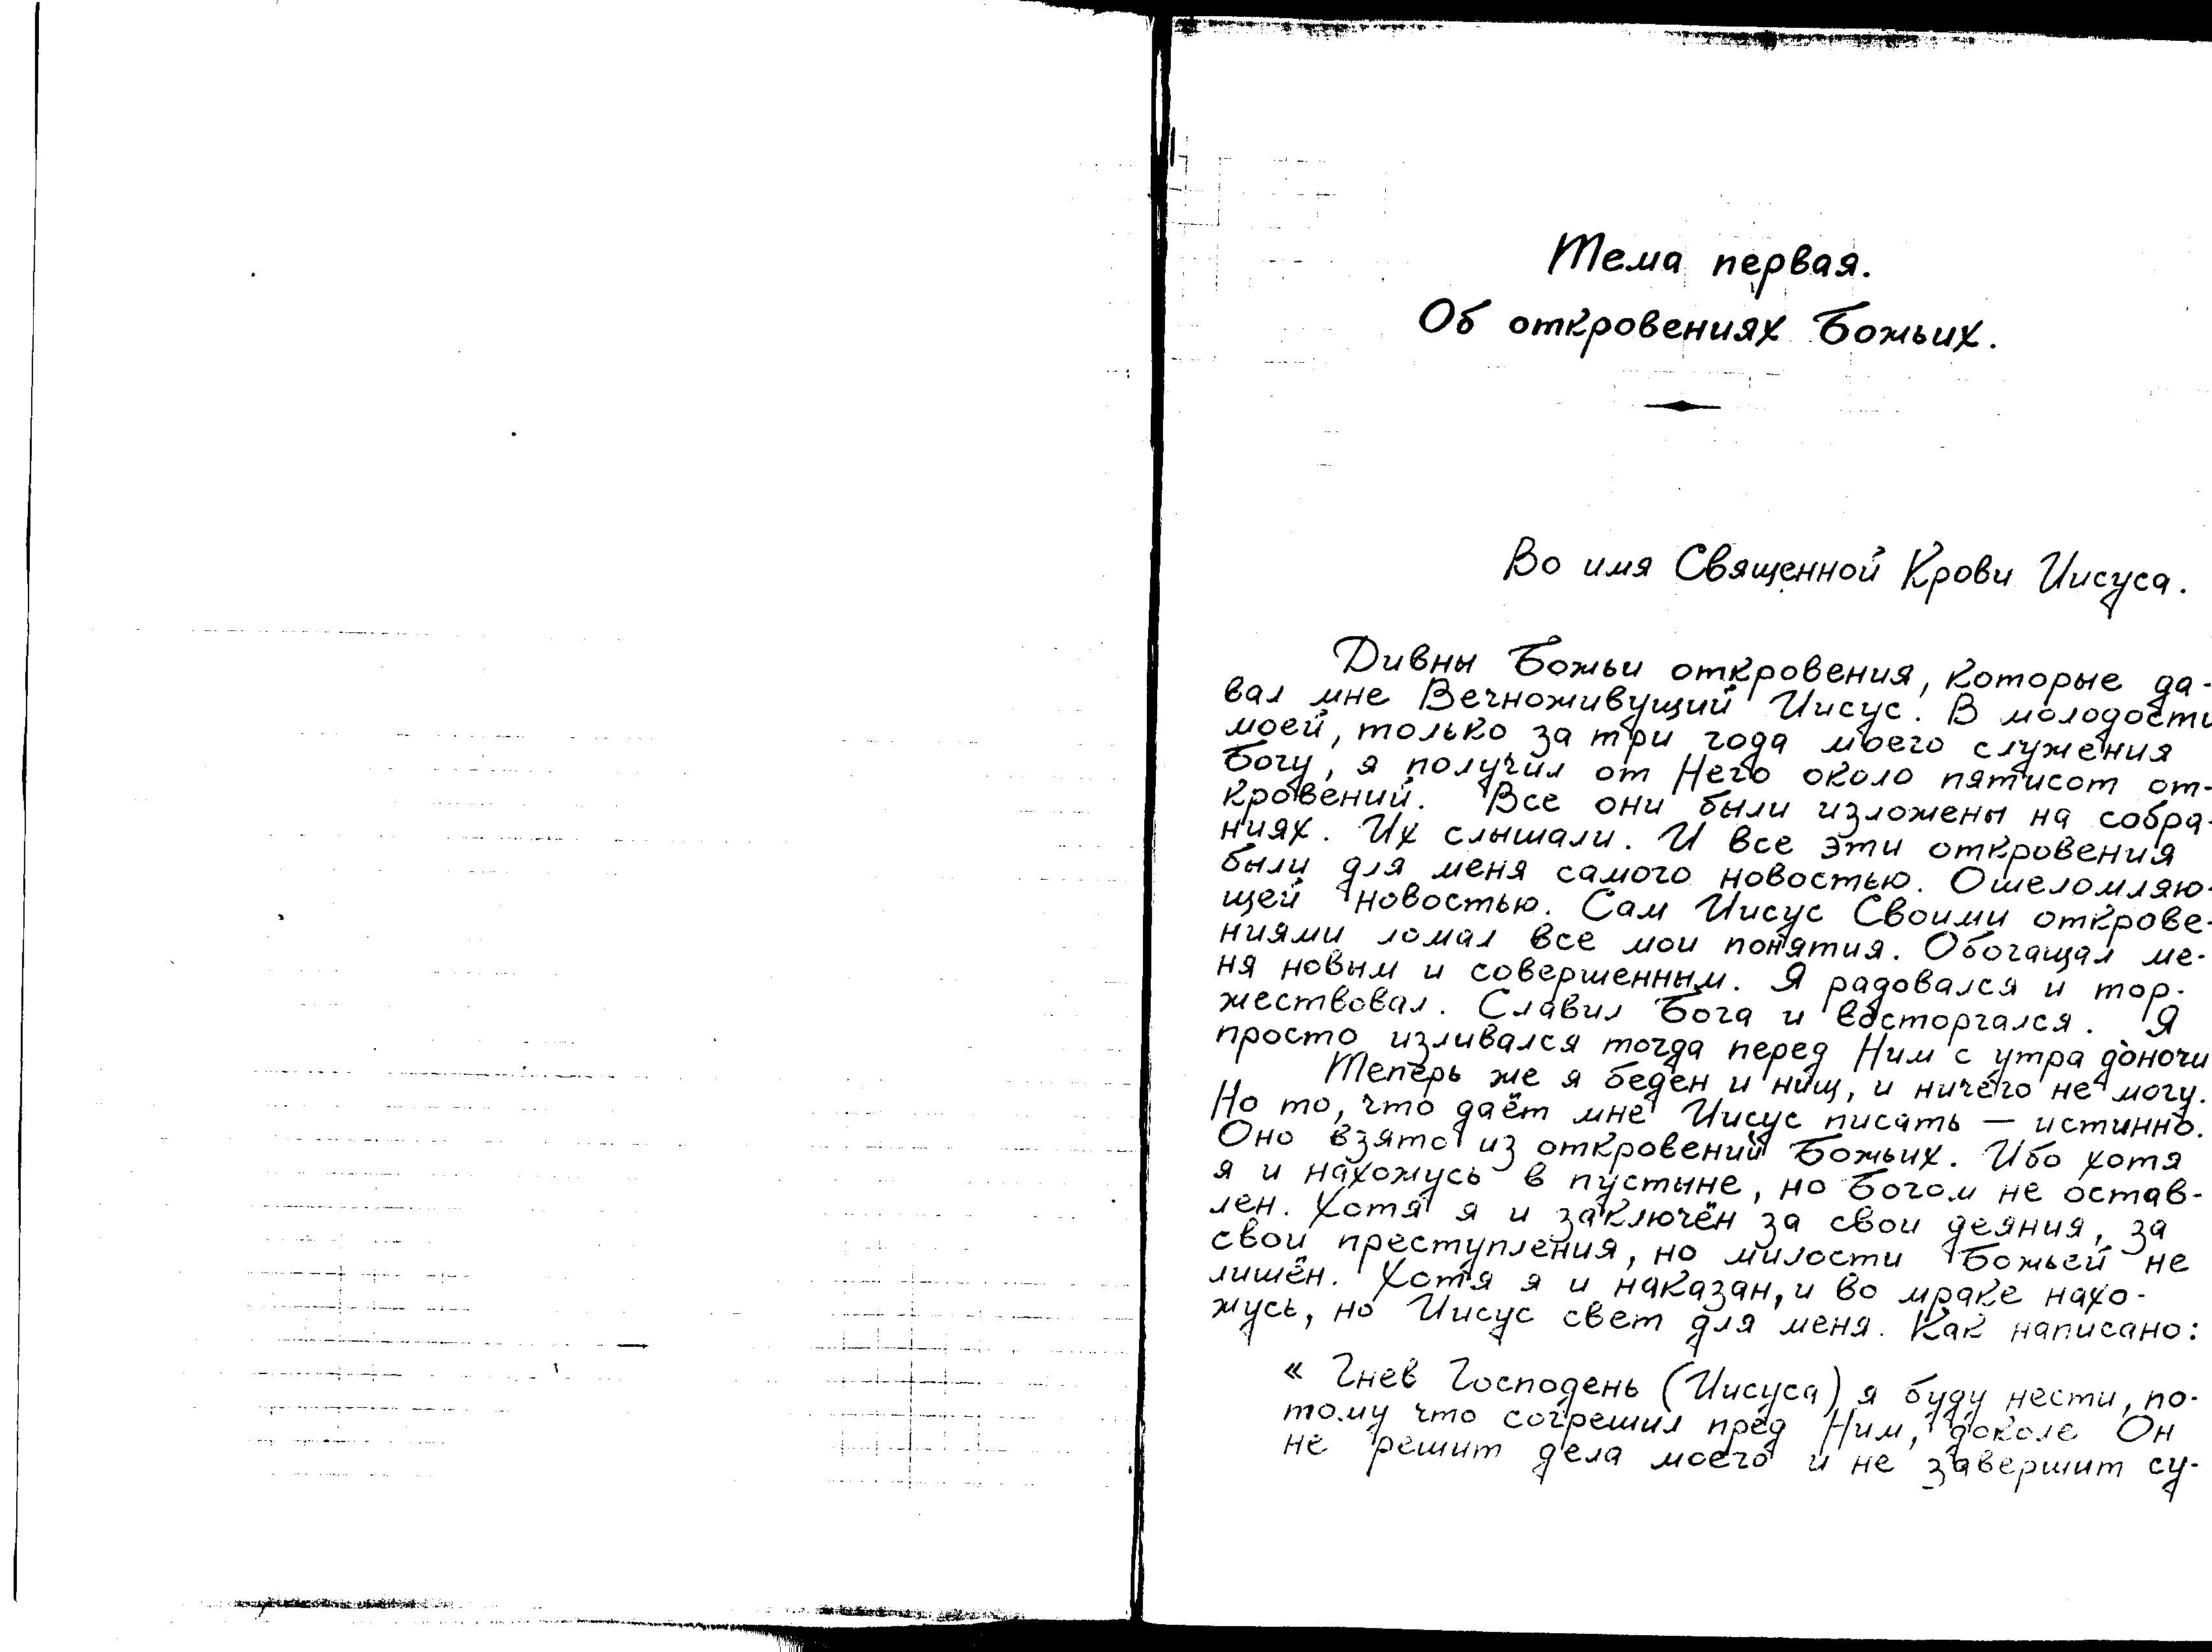 Тема первая.
Об откровениях Божьих.
Во имя Священной Крови Иисуса.
Дивны Божьи откровения, которые да-
вал мне Вечноживущий Иисус. В молодости
моей, только за три года моего служения
Богу, я получил от Него около пятисот от-
кровений. Все они были изложены на собра-
ниях. Их слышали. И все эти откровения
были для меня самого новостью. Ошеломляю-
щей новостью. Сам Иисус Своими открове-
ниями ломал все мои понятия. Обогащал ме-
ня новым и совершенным. Я радовался и тор-
жествовал. Славил Бога и восторгался. Я
просто изливался тогда перед Ним с утра до ночи
Теперь же я беден и нищ, и ничего не могу.
Но то, что даёт мне Иисус писать — истинно.
Оно взято из откровений Божьих. Ибо хотя
я и нахожусь в пустыне, но Богом не остав-
лен. Хотя я и заключён за свои деяния, за
свои преступления, но милости Божьей не
лишён. Хотя я и наказан, и во мраке нахо-
жусь, но Иисус свет для меня. Как написано:
« Гнев Господень (Иисуса) я буду нести, по-
тому что согрешил пред Ним, доколе Он
не решит дела моего и не завершит су-